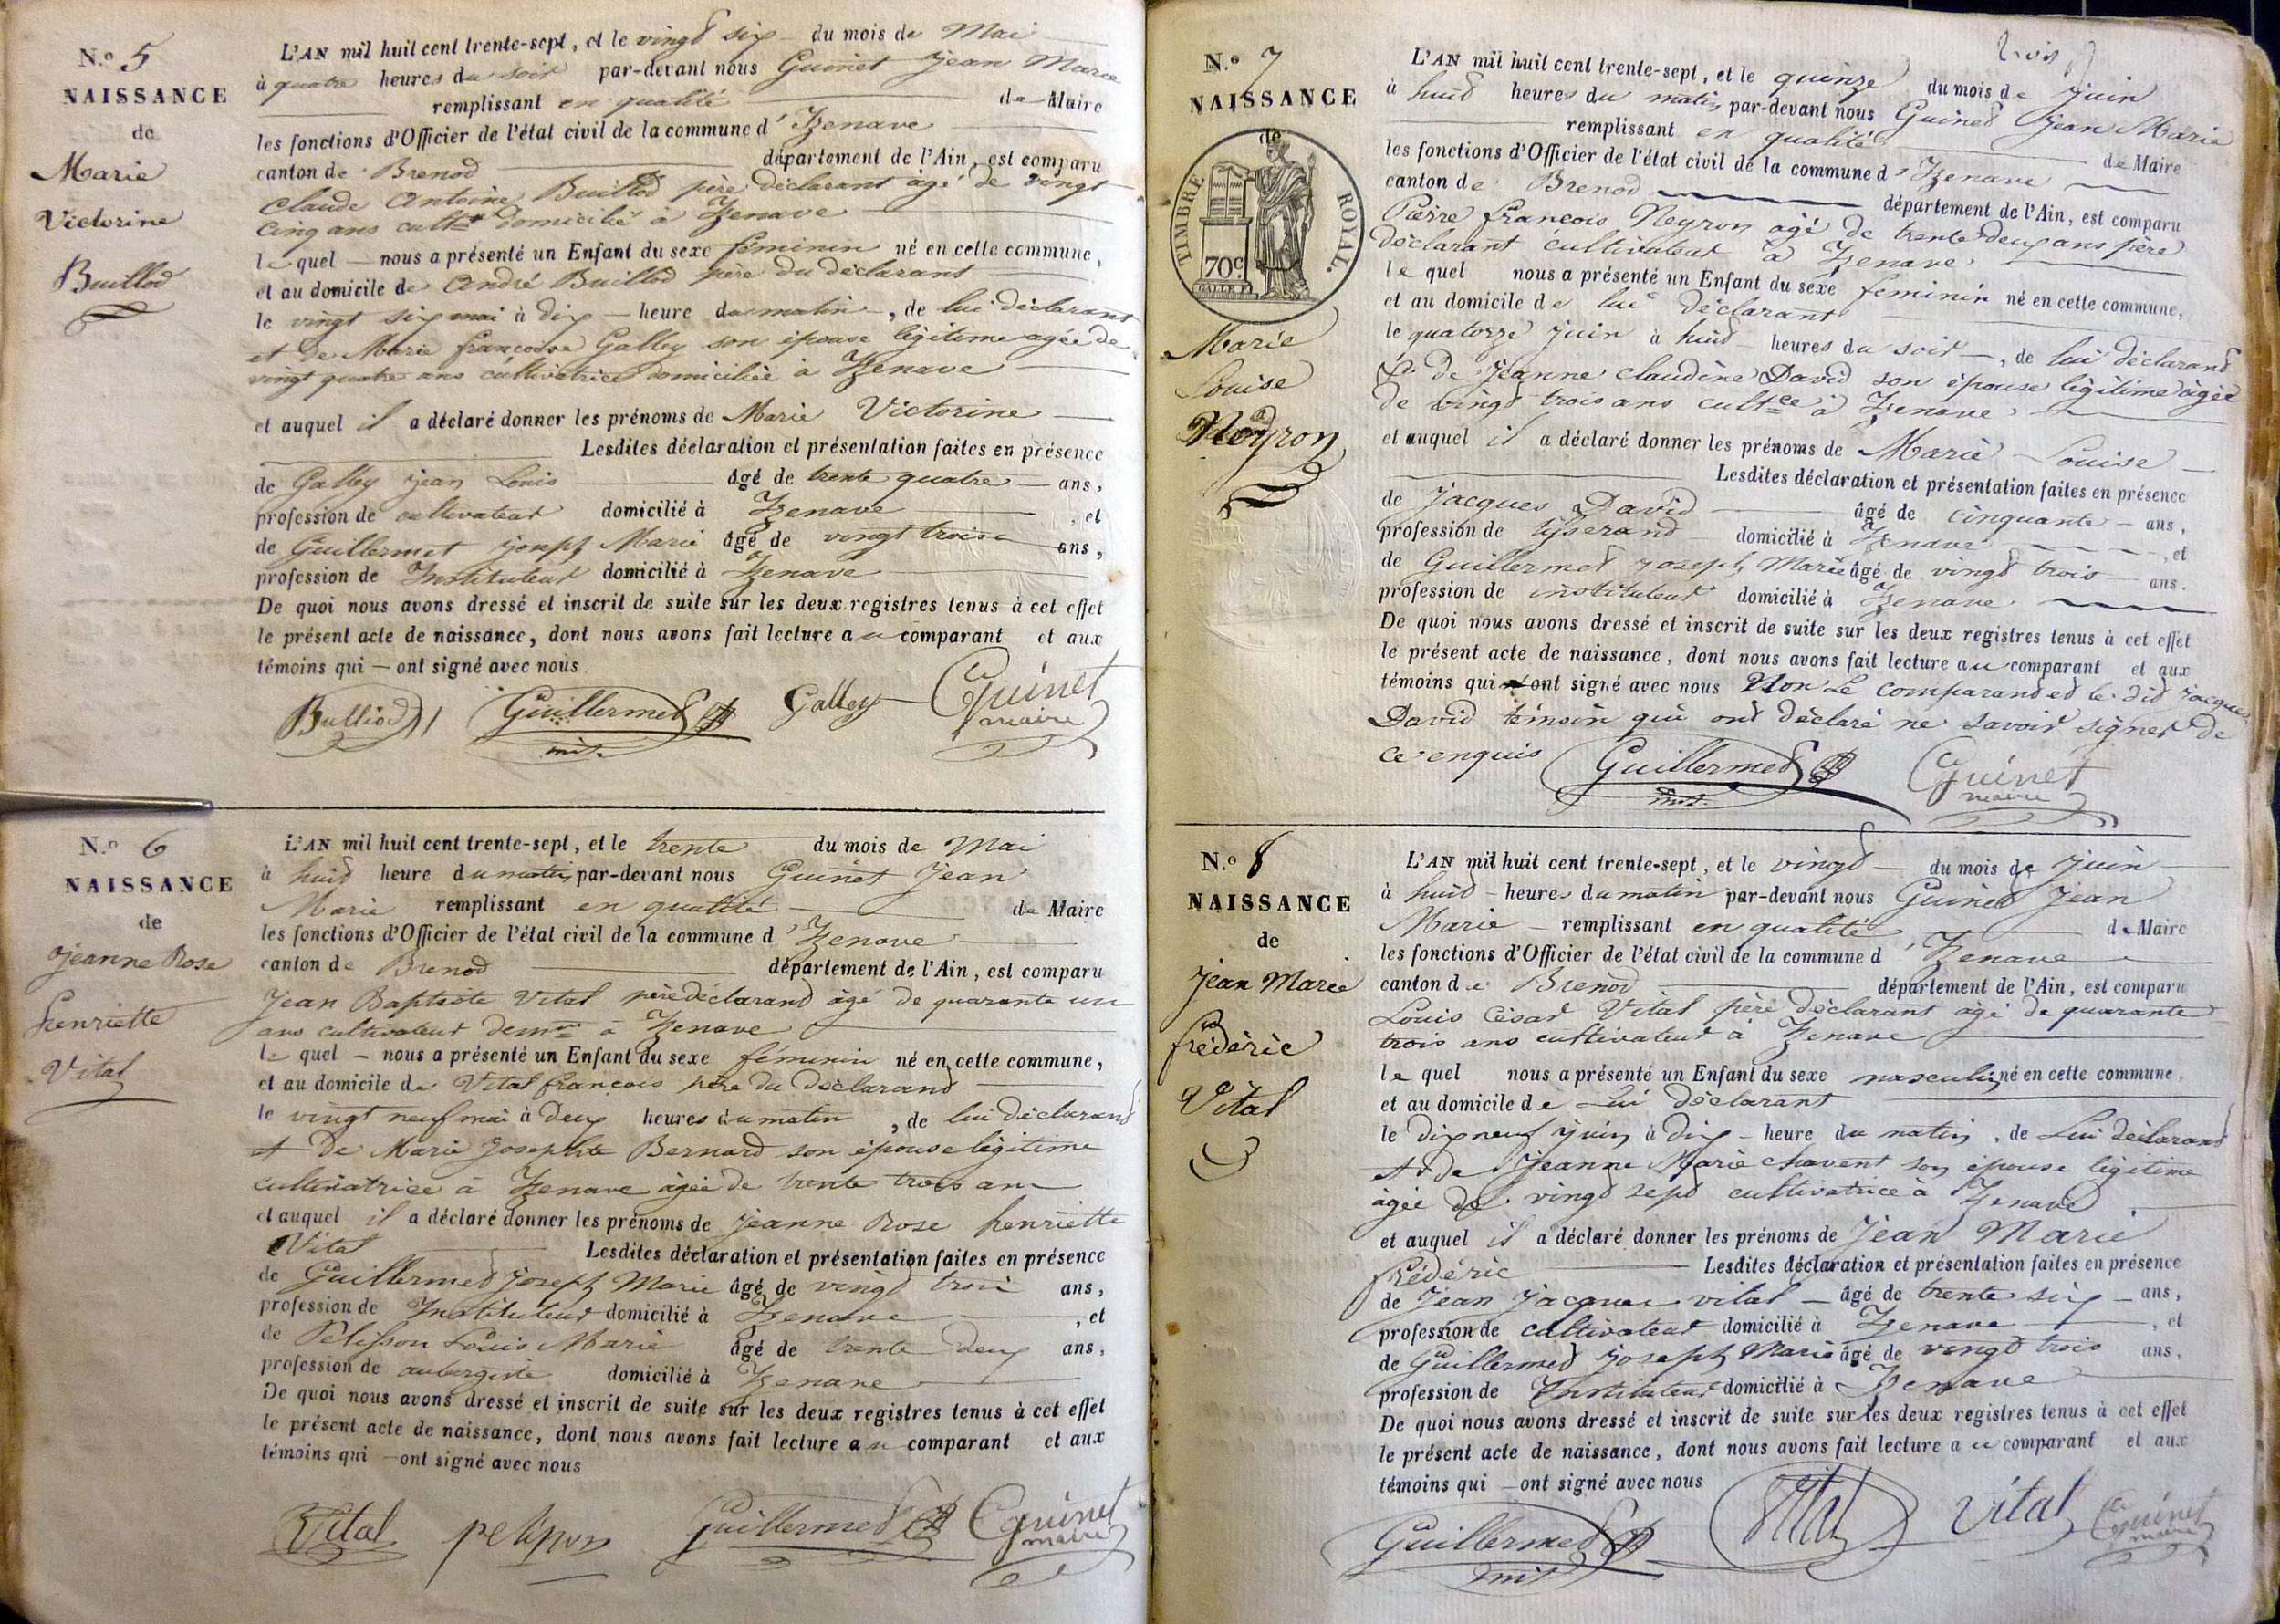 N.º 5
NAISSANCE
de
Marie
Victorine
Buillod
L'AN mil huit cent trente-sept, et le vingt six du mois de Mai
à quatre heures du soir par-devant nous Guinet Jean Marie
remplissant en qualité de Maire
les fonctions d'Officier de l'état civil de la commune d'Izenave
canton de Brenod département de l'Ain, est comparu
Claude Antoine Buillod père déclarant âgé de vingt
cinq ans cultr domicilié à Izenave
le quel nous a présenté un Enfant du sexe féminin né en cette commune,
et au domicile de André Buillod père du déclarant
le vingt six mai à dix heure du matin, de lui déclarant
et de Marie françoise Galley son épouse légitime agée de
vingt quatre ans cultivatrice domiciliée à Izenave
et auquel il a déclaré donner les prénoms de Marie Victorine
Lesdites déclaration et présentation faites en présence
de Galley jean Louis âgé de trente quatre ans,
profession de cultivateur domicilié à Izenave, et
de Guillermet joseph Marie âgé de vingt trois ans,
profession de Instituteur domicilié à Izenave
De quoi nous avons dressé et inscrit de suite sur les deux registres tenus à cet effet
le présent acte de naissance, dont nous avons fait lecture au comparant et aux
témoins qui ont signé avec nous
Bulliod Guillermet Galley Guinet
mit. maire
N.º 6
NAISSANCE
de
Jeanne Rose
henriette
Vital
L'AN mil huit cent trente-sept, et le trente du mois de Mai
à huit heure du matin par-devant nous Guinet Jean
Marie remplissant en qualité de Maire
les fonctions d'Officier de l'état civil de la commune d'Izenave
canton de Brenod département de l'Ain, est comparu
Jean Baptiste Vital père déclarand âgé de quarante un
ans cultivateur à Izenave
le quel nous a présenté un Enfant du sexe féminin né en cette commune,
et au domicile de Vital françois père du déclarand
le vingt neuf mai à deux heures du matin, de lui déclarand
et de Marie Josephte Bernard son épouse légitime
cultivatrice à Izenave âgée de trente trois ans
et auquel il a déclaré donner les prénoms de jeanne Rose henriette
Vital Lesdites déclaration et présentation faites en présence
de Guillermet Joseph Marie âgé de vingt trois ans,
profession de Instituteur domicilié à Izenave, et
de Pelisson Louis Marie âgé de trente deux ans,
profession de aubergiste domicilié à Izenave
De quoi nous avons dressé et inscrit de suite sur les deux registres tenus à cet effet
le présent acte de naissance, dont nous avons fait lecture au comparant et aux
témoins qui ont signé avec nous
Vital pelisson Guillermet Guinet
maire
trois
N.º 7
NAISSANCE
de
TIMBRE ROYAL.
70c
Marie
Louise
Neyron
L'AN mil huit cent trente-sept, et le quinze du mois de juin
à huit heures du matin par-devant nous Guinet Jean Marie
remplissant en qualité de Maire
les fonctions d'Officier de l'état civil de la commune d'Izenave
canton de Brenod département de l'Ain, est comparu
Pierre françois Neyron agé de trente deux ans père
déclarant cultivateur à Izenave
le quel nous a présenté un Enfant du sexe féminin né en cette commune,
et au domicile de lui déclarant
le quatorze juin à huit heures du soir, de lui déclarand
et de Jeanne claudine David son épouse légitime âgée
de vingt trois ans cultce à Izenave
et auquel il a déclaré donner les prénoms de Marie Louise
Lesdites déclaration et présentation faites en présence
de Jacques David âgé de cinquante ans,
profession de tisserand domicilié à Izenave, et
de Guillermet joseph Marie âgé de vingt trois ans.
profession de instituteur domicilié à Izenave
De quoi nous avons dressé et inscrit de suite sur les deux registres tenus à cet effet
le présent acte de naissance, dont nous avons fait lecture au comparant et aux
témoins qui ont signé avec nous Non Le comparand et le dit Jacques
David témoin qui ont déclaré ne savoir signer de
ce enquis Guillermet Guinet
mit. maire
N.º 8
NAISSANCE
de
jean Marie
frédéric
Vital
L'AN mil huit cent trente-sept, et le vingt du mois de juin
à huit heures du matin par-devant nous Guinet Jean
Marie remplissant en qualité de Maire
les fonctions d'Officier de l'état civil de la commune d'Izenave
canton de Brenod département de l'Ain, est comparu
Louis César Vital père déclarant âgé de quarante
trois ans cultivateur à Izenave
le quel nous a présenté un Enfant du sexe masculin né en cette commune.
et au domicile de Lui déclarant
le dix neuf juin à dix heure du matin, de Lui déclarand
et de Jeanne Marie chavent son épouse légitime
agée de vingt sept cultivatrice à Izenave
et auquel il a déclaré donner les prénoms de Jean Marie
frédéric Lesdites déclaration et présentation faites en présence
de Jean jacques vital âgé de trente six ans,
profession de cultivateur domicilié à Izenave, et
de Guillermet joseph Marie âgé de vingt trois ans,
profession de Instituteur domicilié à Izenave
De quoi nous avons dressé et inscrit de suite sur les deux registres tenus à cet effet
le présent acte de naissance, dont nous avons fait lecture au comparant et aux
témoins qui ont signé avec nous
Guillermet Vital Vital Guinet
mit maire